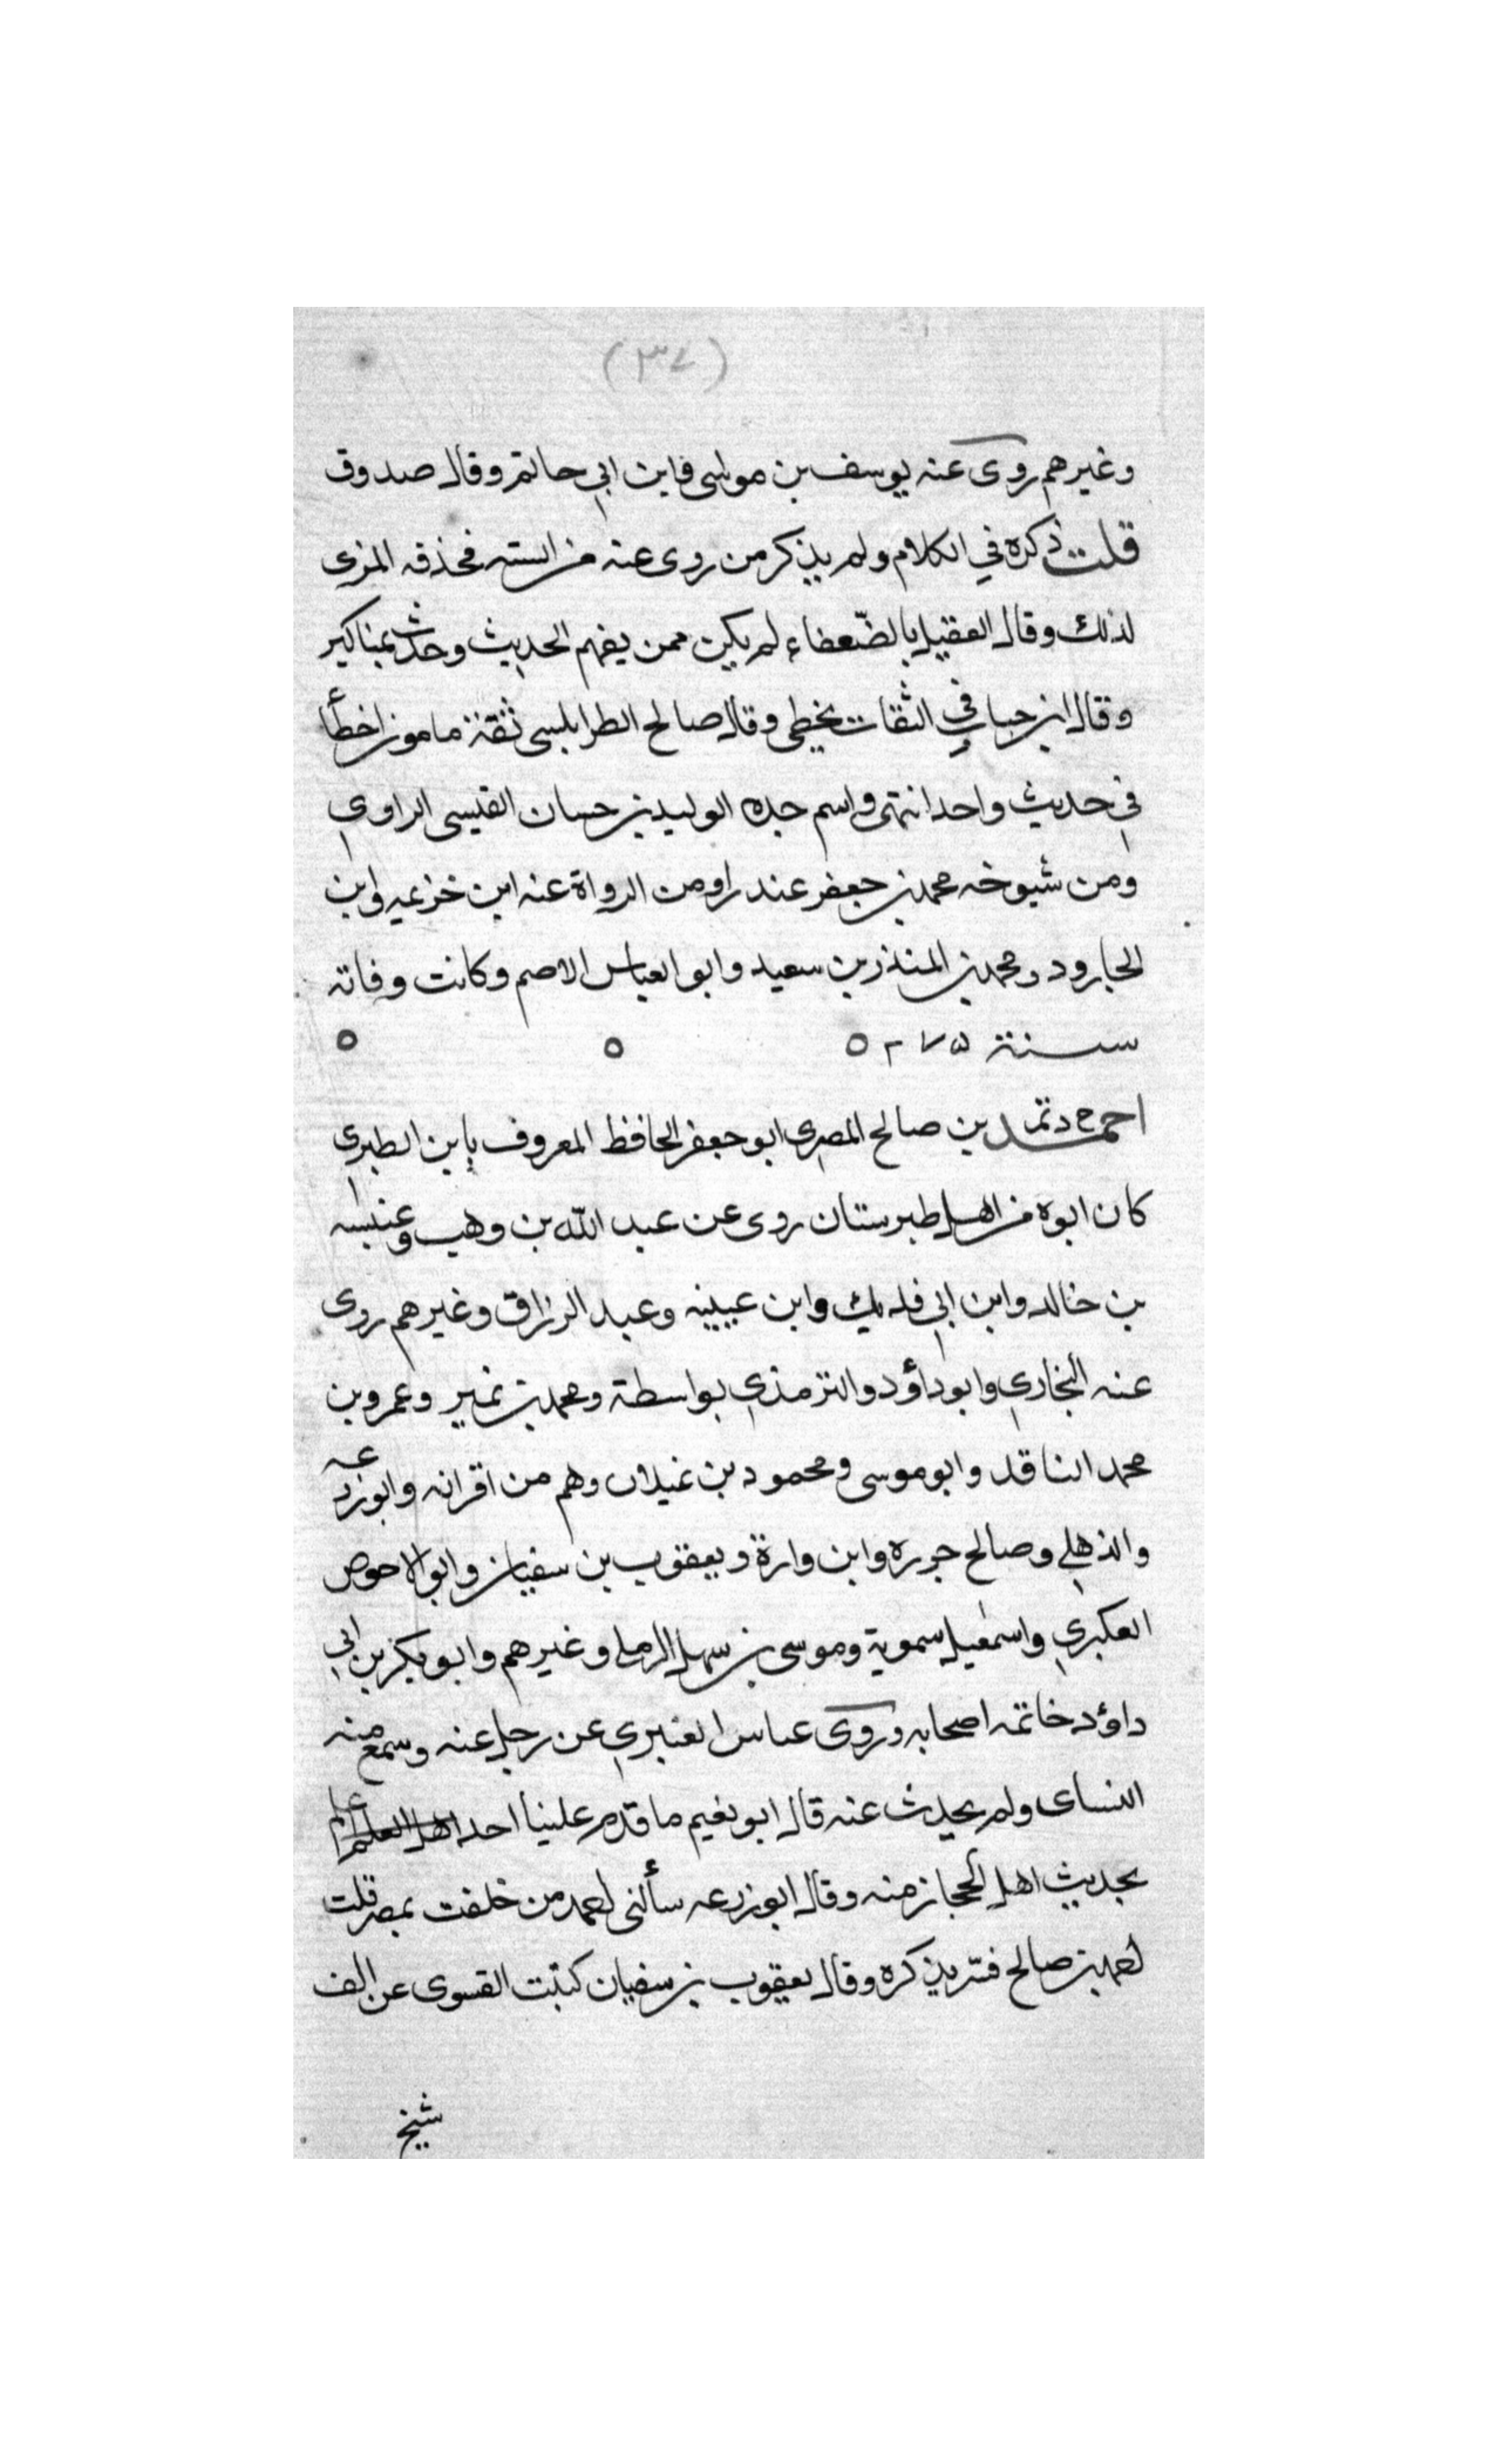 (٣٧)
وغيرهم روى عنه يوسف بن موسى وابن ابي حاتم وقال صدوق
قلت ذكره في الكلام ولم يذكر من روى عنه من الستة فحذفه المزى
لذلك وقال العقيلي بالضعفاء لم يكن ممن يفهم الحديث وحدث بمناكير
وقال ابن حبان في الثقات يخطى وقال صالح الطرابلسى ثقة مامون اخطأ
في حديث واحد انتهى واسم جده الوليد بن حسان القيسى الراوي
ومن شيوخه محمد بن جعفر غندر او من الرواة عنه ابن خزيمه وابن
الجارود ومحمد بن المنذر بن سعيد وابو العباس الاصم وكانت وفاته
سنة ٢٧٥ ه ه ه
احمد خ د تم بن صالح المصرى ابو جعفر الحافظ المعروف بابن الطبرى
كان ابوه من اهل طبرستان روى عن عبد الله بن وهب وعنبسه
بن خالد وابن ابي فديك وابن عيينه وعبد الرزاق وغيرهم روى
عنه البخاري وابو داؤد والترمذي بواسطة ومحمد بن نمير وعمرو بن
محمد الناقد وابو موسى ومحمود بن غيلان وهم من اقرانه وابو زرعه
والذهلي وصالح جزره وابن وارة ويعقوب بن سفيان وابو الاحوص
العكبري واسمعيل سموية وموسى بن سهل الرملى وغيرهم وابو بكر بن ابي
داؤد خاتمه اصحابه وروى عباس العنبري عن رجل عنه وسمع منه
النساى ولم يحدث عنه قال ابو نعيم ما قدم علينا احد اهل العلم اعلم
بحديث اهل الحجاز منه وقال ابو زرعه سألنى احمد من خلفت بمصر قلت
احمد بن صالح فسر بذكره وقال يعقوب بن سفيان كتبت الفسوى عن الف
شيخ